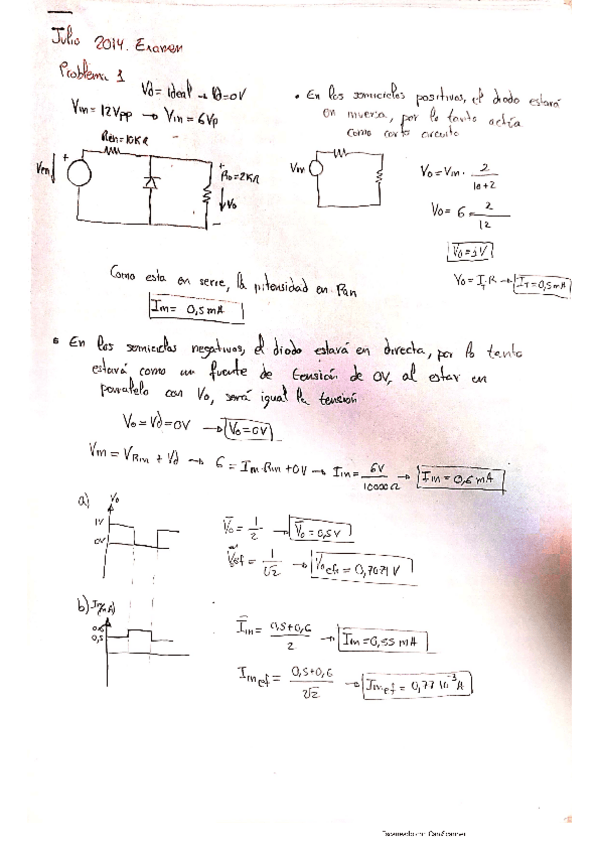 Julio 2014. Examen
Problema 1
Vd = ideal → Vd=0V
Vin = 12Vpp → Vin = 6Vp
• En los semiciclos positivos, el diodo estará
en inversa, por lo tanto actúa
como corto circuito
Rin=10KΩ
Vin
+
+
Ro=2KΩ
Vo
-
Vin
Vo = Vin · 2/10+2
Vo = 6 · 2/12
Vo=1V
Vo = IT·R → IT=0,5mA
Como esta en serie, la intensidad en Rin
Iin = 0,5mA
• En los semiciclos negativos, el diodo estará en directa, por lo tanto
estará como un fuente de tensión de 0V, al estar en
paralelo con Vo, será igual la tensión
Vo = Vd = 0V → Vo=0V
Vin = VRin + Vd → 6 = Iin·Rin + 0V → Iin = 6V/10000Ω → Iin = 0,6mA
a)
Vo
1V
0V
Vo = 1/2 → Vo = 0,5V
Vef = 1/√2 → Voef = 0,7071 V
b)
0,6
0,5
Iin = 0,5+0,6/2 → Iin = 0,55 mA
Iin ef = 0,5+0,6/√2 → Iin ef = 0,77 10-3 A
Escaneado con CamScanner